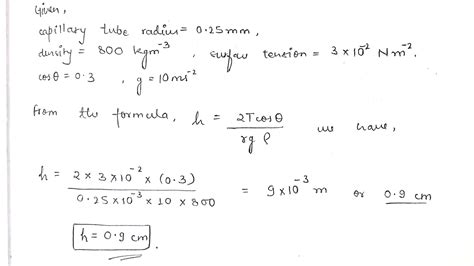 Given,
capillary tube radius = 0.25 mm,
density = 800 kgm⁻³, surface tension = 3 × 10⁻² Nm⁻².
cosθ = 0.3, g = 10 ms⁻²
From the formula, h = 2Tcosθ / rgρ we have,
h = 2 × 3 × 10⁻² × (0.3) / 0.25 × 10⁻³ × 10 × 800 = 9 × 10⁻³ m or 0.9 cm
h = 0.9 cm.